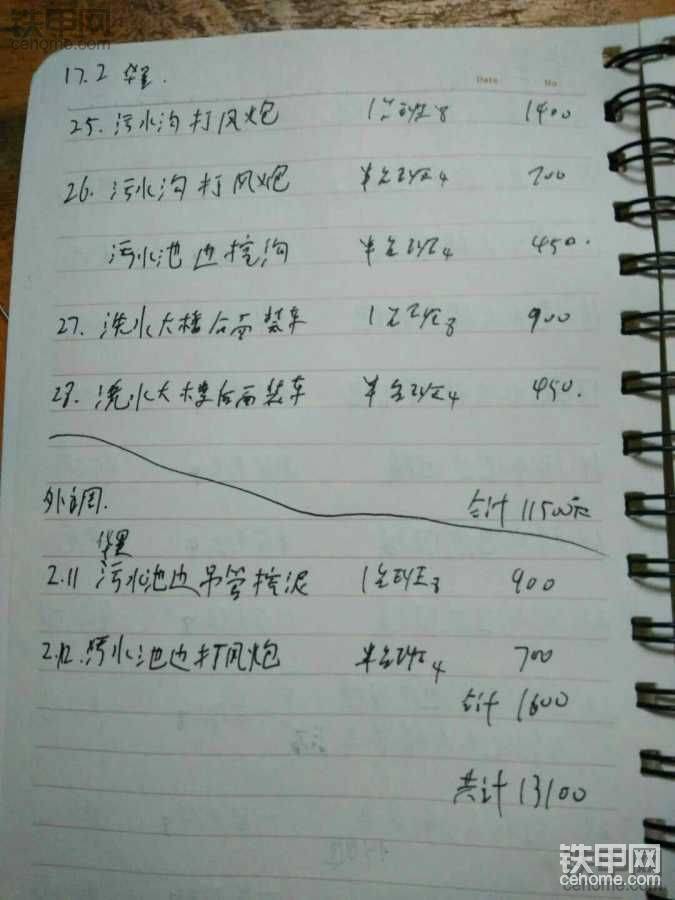 铁甲网
cehome.com
17.2 华星.
Date No
25. 污水沟打风炮 1台班8 1400
26. 污水沟打风炮 半台班4 700
污水池边挖沟 半台班4 450.
27. 洗水大楼后面装车 1台班8 900
28. 洗水大楼后面装车 半台班4 450.
外调. 合计 11500元
2.11 污水池边吊管挖泥 1台班8 900
2.12. 污水池边打风炮 半台班4 700
合计 1600
共计 13100
铁甲网
cehome.com